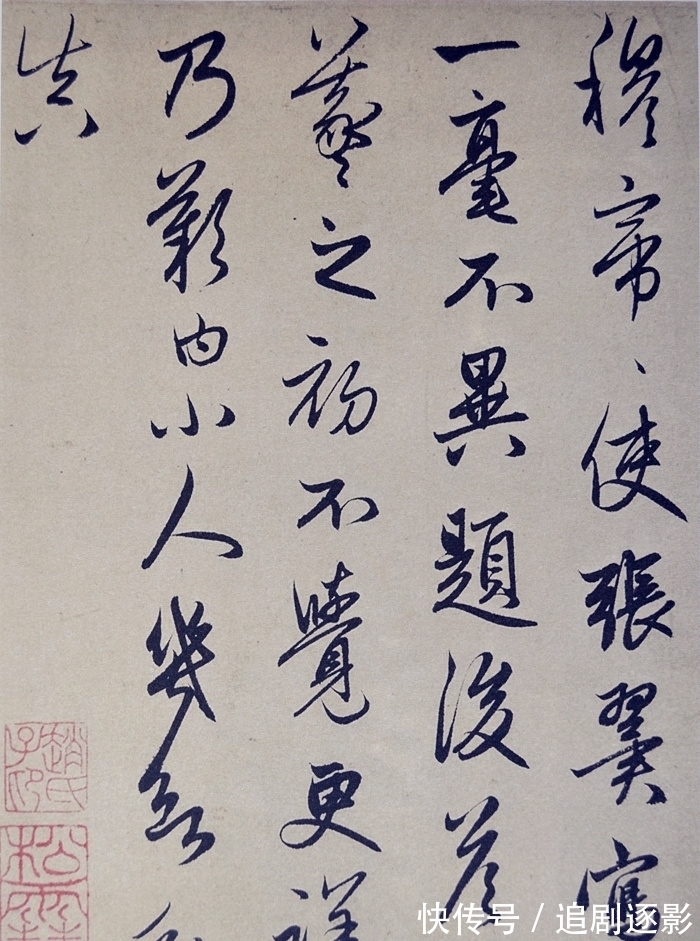 穆帝〻使張翼寫
一毫不異題後答
羲之初不覺更詳
乃歎曰小人幾欲
真
趙氏子昂
松雪
快传号 / 追剧逐影